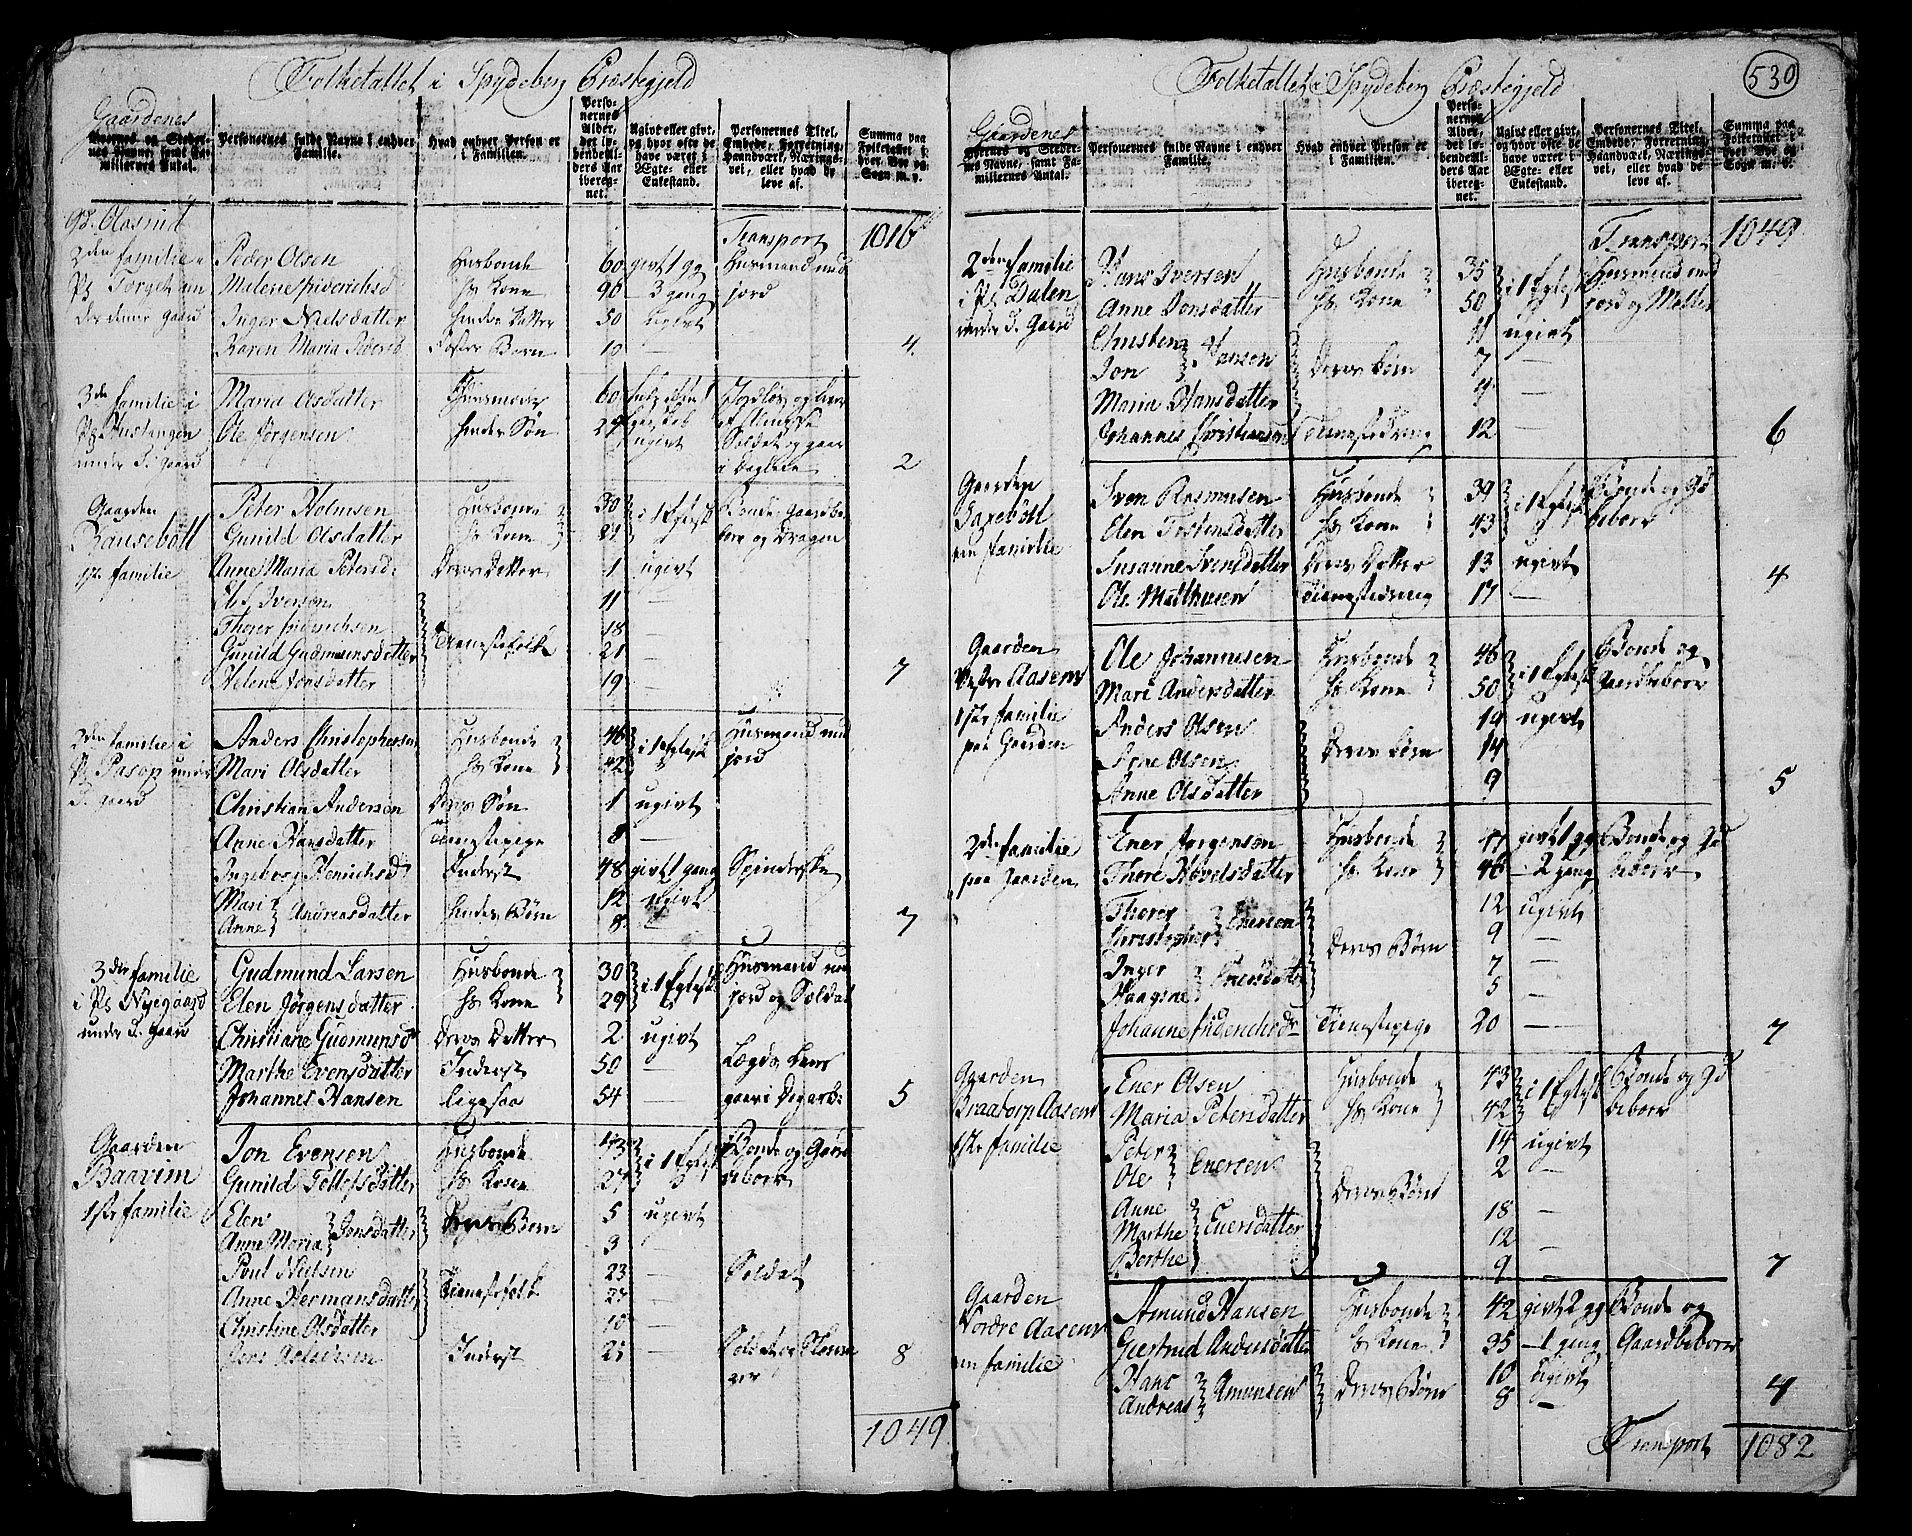 Folketallet i Spydeberg Præstegjeld
Gaardenes
Byernes og Stedernes Navne, samt Familiernes Antal.
Personernes fulde Navne i enhver Familie.
Hvad enhver Person er i Familien.
Personernes Alder, det løbende Alders Aar iberegnet.
Ugivt eller givt, og hvor ofte de have været i Ægte- eller Enkestand.
Personernes Titel, Embede, Forretning, Haandværk, Næringsvei, eller hvad de leve af.
Summa paa Folketallet i hver Bye og Sogn m. v.
Transport 1016
2den familie i Peder Olsen Husbonde 60 givt 1 gg Husmand med
Pl. Torget un Malene friderichsd hs Kone 90 — 3 gang jord
der denne gaard Inger Nielsdatter hendes Datter 50 ugivt
Karen Maria Pedersd Foster Barn 10 — 4.
3die familie i Maria Olsdatter Huusmoder 60
Ole Jørgensen hendes Søn 27 ugivt Soldat og gaar
under d. gaard i Dagleie 2
Gaarden Peter Holmsen Husbonde 30 i 1 Egtesk Bonde gaardbe
Bausebøll Gunild Olsdatter hs Kone boer og Dragon
1ste familie Anne Maria Petersd: Deres Datter 1 ugivt
Ole Iversen 11 —
Thorer friderichsen 18 —
Gunild Gudmunsdatter Tienestefolk 21 —
Helene Jonsdatter 19 — 7
2den familie i Anders Christophersen Husbonde 46 i 1 Egtesk Husmand med
Pl. Pasop under Mari Olsdatter hs Kone 42 jord
d. gaard
Christian Andersen Deres Søn 1 ugivt
Anne Hansdatter Tienestepige 8 —
Ingeborg Henrichsd Inderst 48 givt 1 gang Spinderske
Mari 12 ugivt
Anne } Andreasdatter hendes Børn 8 — 7
3die familie Gudmund Larsen Husbonde 30 i 1 Egtesk Husmand med
i Pl. Nyegaard Elen Jørgensdatter hs Kone 29 jord og Soldat
under d. gaard Christiane Gudmunsdr Deres Datter 2 ugivt
Marthe Evensdatter Inderst 50 — Lægds Lem
Johannes Hansen ligesaa 54 — gaar i Dagarb: 5
Gaarden Jon Evensen Husbonde 43 i 1 Egtesk Bonde og Gaard
Baarim Gunild Tollefsdatter hs Kone 27 beboer
1ste familie Elen 5 ugivt
Anne Maria } Jonsdatter Deres Børn 3
Poul Nielsen 23 — Soldat
Anne Hermansdatter Tienestefolk 27 —
Christine Olsdatter 10 —
Inderst 25 8
1049
530
Folketallet i Spydeberg Præstegjeld
Gaardenes
Byernes og Stedernes Navne, samt Familiernes Antal.
Personernes fulde Navne i enhver Familie.
Hvad enhver Person er i Familien.
Personernes Alder, det løbende Alders Aar iberegnet.
Ugivt eller givt, og hvor ofte de have været i Ægte- eller Enkestand.
Personernes Titel, Embede, Forretning, Haandværk, Næringsvei, eller hvad de leve af.
Summa paa Folketallet i hver Bye og Sogn m. v.
Transport 1049
2den familie Hans Iversen Husbonde 35 i 1 Egtesk Husmand med
i Pl. Dalen Anne Jonsdatter hs Kone 50 jord og Møller
under d. Gaard Christen 11 ugivt
Jon } Hansen Deres børn 7 —
Maria Hansdatter 4 —
Johannes Christiansen Tienestedreng 12 — 6
Gaarden Sven Rasmusen Husbonde 39 i 1 Egtesk Bonde og Gd
Saxebøll Elen Tostensdatter hs Kone 43 beboer
en familie Susanne Svensdatter Deres Datter 13 ugivt
Ole Mathisen Tienestedreng 17 — 4
Gaarden Ole Johannesen Husbonde 46 i 1 Egtesk Bonde og
Vestre Aasens Mari Andersdatter hs Kone 50 Gaardbeboer
1ste familie Anders Olsen 19 ugivt
paa Gaarden Arne Olsen Deres børn 14 —
Anne Olsdatter 9 5
2den familie Ener Jørgensen Husbonde 47 givt 1 gg Bonde og Gd
paa gaarden Thore Hovelsdatter hs Kone 46 — 2 gang beboer
Thorer 12 ugivt
Christopher } Enersen 9 —
Inger Deres Børn 7 —
Haagine } Enersdatter 5 —
Johanne friderichsdr Tienestepige 20 — 7
Gaarden Ener Olsen Husbonde 43 i 1 Egtesk Bonde og Gd
Braatorp Aasens Maria Petersdatter hs Kone 42 beboer
1ste familie Peter 14 ugivt
Ole } Enersen 2 —
Anne Deres Børn 18 —
Marthe } Enersdatter 12 —
Berthe 9 — 7
Gaarden Amund Hansen Husbonde 42 givt 2 gg Bonde og
Nordre Aasens Giertrud Andersdatter hs Kone 35 — 1 gang Gaardbeboer
en familie Hans 10 ugivt
Andreas } Amunsen Deres Børn 8 — 4
Transport 1082